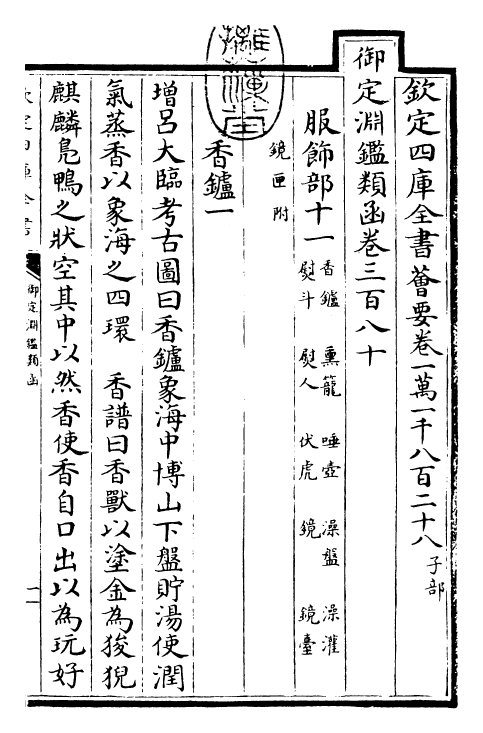 欽定四庫全書薈要卷一萬一千八百二十八 子部
御定淵鑑類函卷三百八十
服飾部十一 香鑪 熏籠 唾壺 澡盤 澡灌
熨斗 熨人 伏虎 鏡 鏡臺
鏡匣附
香鑪一
增吕大臨考古圖曰香鑪象海中博山下盤貯湯使潤
氣蒸香以象海之四環 香譜曰香獸以塗金為狻猊
麒麟鳧鴨之狀空其中以然香使香自口出以為玩好
欽定四庫全書
御定淵鑑類函
一